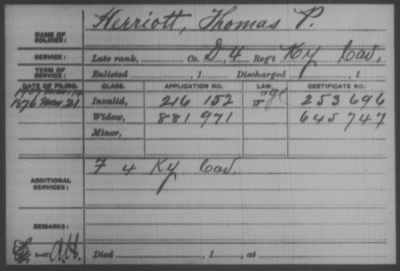 NAME OF SOLDIER: Herriott, Thomas P.
SERVICE: Late rank, Co. D, 4 Reg't Ky Cav.
TERM OF SERVICE: Enlisted , 1 Discharged , 1
DATE OF FILING. CLASS. APPLICATION NO. LAW. CERTIFICATE NO.
1876 Mar. 21 Invalid, 216 152 age 253 696
Widow, 881 971 645 747
Minor,
ADDITIONAL SERVICES: F 4 Ky Cav.
REMARKS:
Died , 1 , at